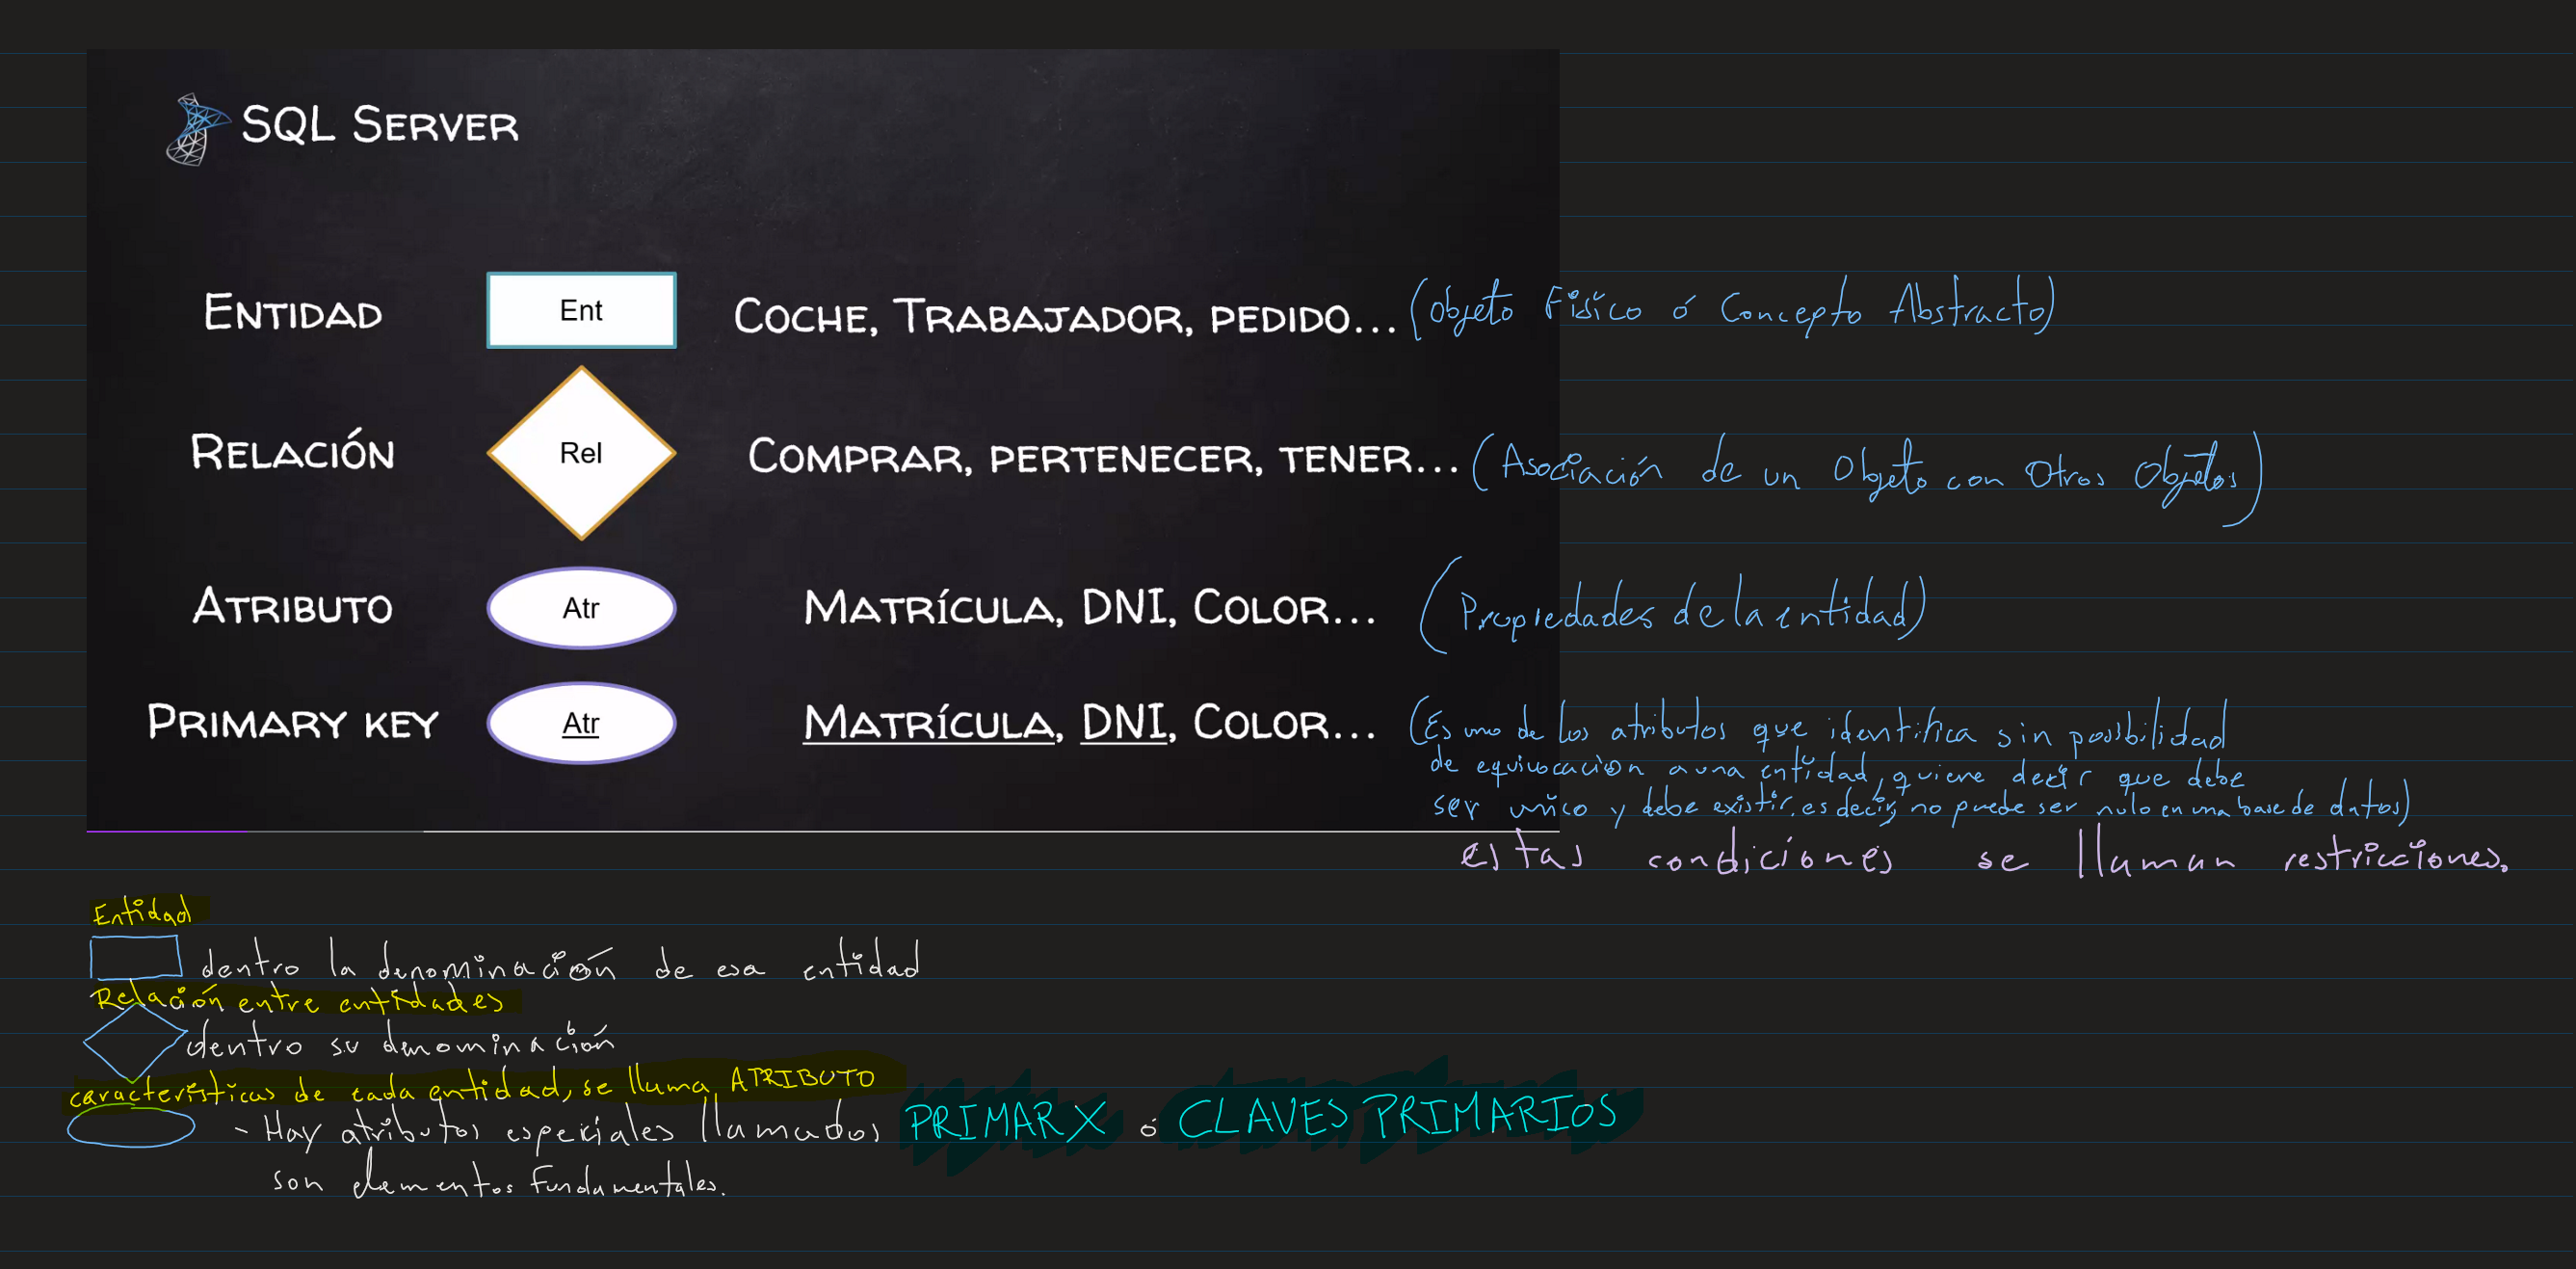 SQL SERVER
ENTIDAD Ent COCHE, TRABAJADOR, PEDIDO... (objeto Físico ó Concepto Abstracto)
RELACIÓN Rel COMPRAR, PERTENECER, TENER... (Asociación de un Objeto con Otros Objetos)
ATRIBUTO Atr MATRÍCULA, DNI, COLOR... (Propiedades de la entidad)
PRIMARY KEY Atr MATRÍCULA, DNI, COLOR... (Es uno de los atributos que identifica sin posibilidad
de equivocación a una entidad, quiere decir que debe
ser único y debe existir. es decir, no puede ser nulo en una base de datos)
estas condiciones se llaman restricciones.
Entidad
dentro la denominación de esa entidad
Relación entre entidades
dentro su denominación
características de cada entidad, se llama ATRIBUTO
- Hay atributos especiales llamados PRIMARY ó CLAVES PRIMARIOS
son elementos Fundamentales.